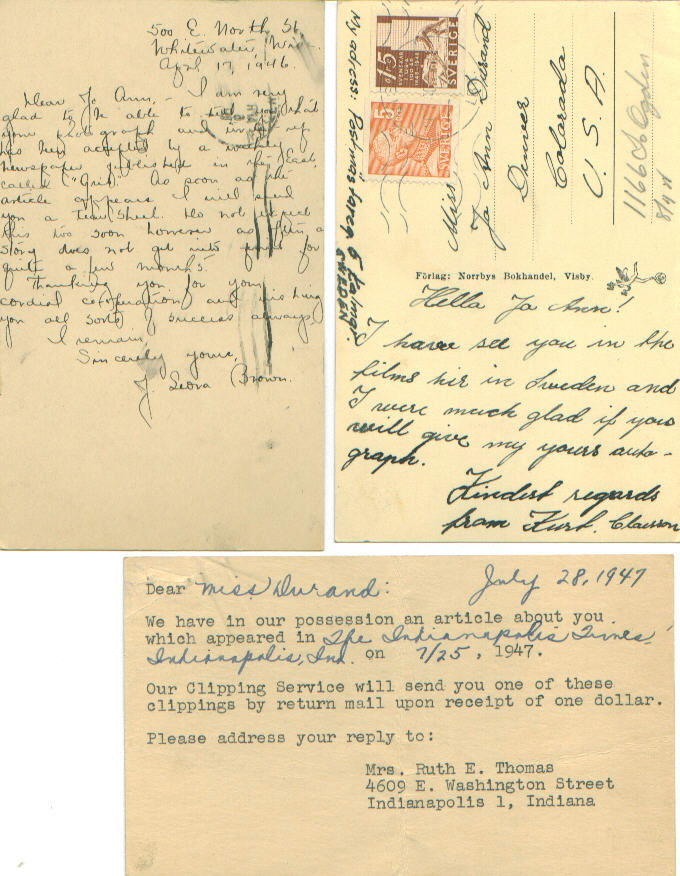 500 E. North St.
Whitewater, Wis.
April 17, 1946.
Dear Jo Ann, - I am very
glad to be able to tell you that
your photograph and
has been accepted by a weekly
newspaper published in the east
called ("Grit." As soon as the
article appears I will send
you a tear sheet. Do not expect
this too soon however as often a
story does not get into print for
quite a few months.
Thanking you for your
cordial cooperation and wishing
you all sorts of success always,
I remain,
Sincerely yours,
J. Leora Brown.
15
SVERIGE
5
SVERIGE
My adress: Postmästareg 6 Kalmar.
SWEDEN
Miss
Jo Ann Durand
Denver
Colorada
U. S. A.
1166 So Ogden
Förlag: Norrbys Bokhandel, Visby.
Hella Jo Ann!
I have see you in the
films hir in Sweden and
I were much glad if you
will give my yours auto-
graph.
Kindest regards
from Kurt. Claesson
Dear Miss Durand: July 28, 1947
We have in our possession an article about you
which appeared in The Indianapolis Times
Indianapolis, Ind. on 7/25, 1947.
Our Clipping Service will send you one of these
clippings by return mail upon receipt of one dollar.
Please address your reply to:
Mrs. Ruth E. Thomas
4609 E. Washington Street
Indianapolis 1, Indiana